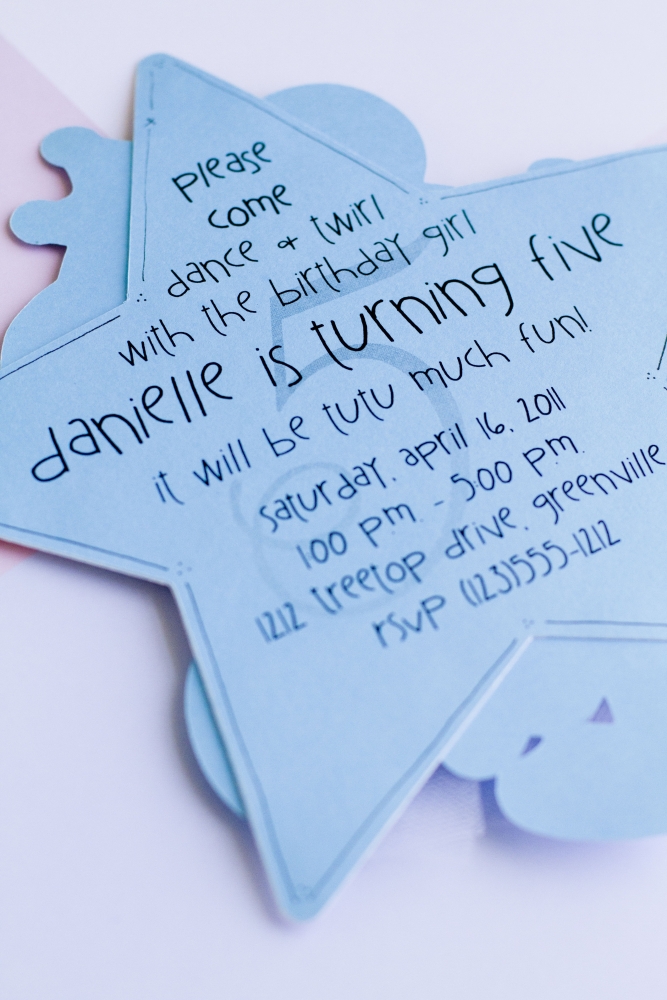 please
come
dance & twirl
with the birthday girl
danielle is turning five
it will be tutu much fun!
saturday, april 16, 2011
1:00 p.m. - 5:00 p.m.
1212 treetop drive, greenville
rsvp (123)555-1212
5